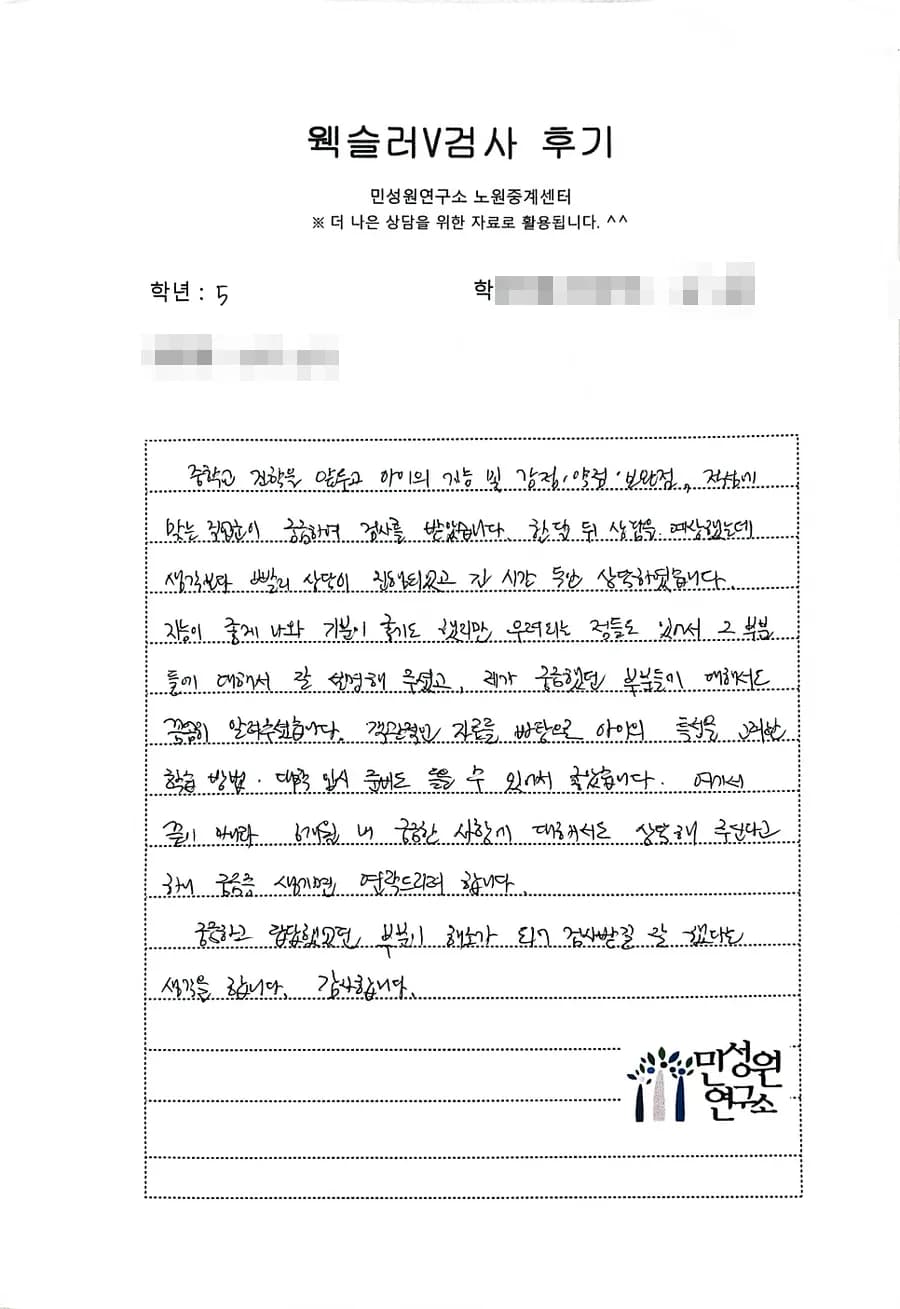 웩슬러V검사 후기
민성원연구소 노원중계센터
※ 더 나은 상담을 위한 자료로 활용됩니다. ^^
학년 : 5
학
중학교 진학을 앞두고 아이의 지능 및 강점, 약점·보완점, 적성에
맞는 직업군이 궁금하여 검사를 받았습니다. 한달 뒤 상담을 예상했는데
생각보다 빨리 상담이 진행되었고 긴 시간 동안 상담하였습니다.
지능이 좋게 나와 기분이 좋기도 했지만 우려되는 점들도 있어서 그 부분
들에 대해서 잘 설명해 주셨고, 제가 궁금했던 부분들에 대해서도
꼼꼼히 알려주셨습니다. 객관적인 자료를 바탕으로 아이의 특성을 고려한
학습 방법·대학 입시 준비도 들을 수 있어서 좋았습니다. 여기서
끝이 아니라 6개월 내 궁금한 사항에 대해서도 상담해 주신다고
하니 궁금증 생기면 연락드리려 합니다.
궁금하고 답답했었던 부분이 해소가 되어 검사받길 잘 했다는
생각을 합니다. 감사합니다.
민성원
연구소